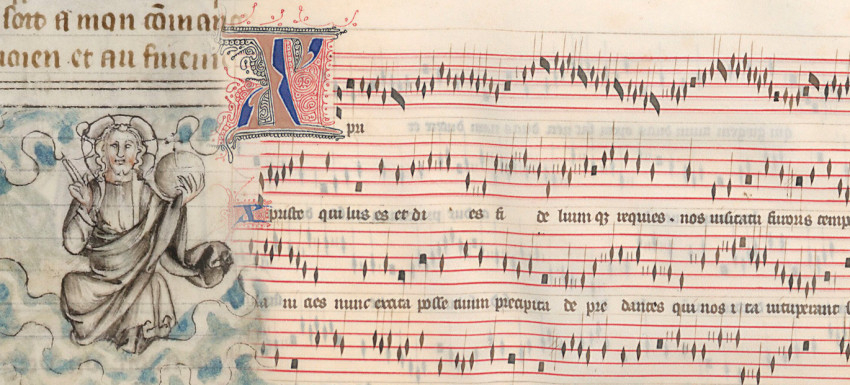 soto a mon cōman
aien et au fincin
Xpri
xpriste qui lus es et di es fi de lium qz requies . nos uisitatū furoris temp
ni cies nunc exata posse tuum precipita de pre dantes qui nos i ta uituperant